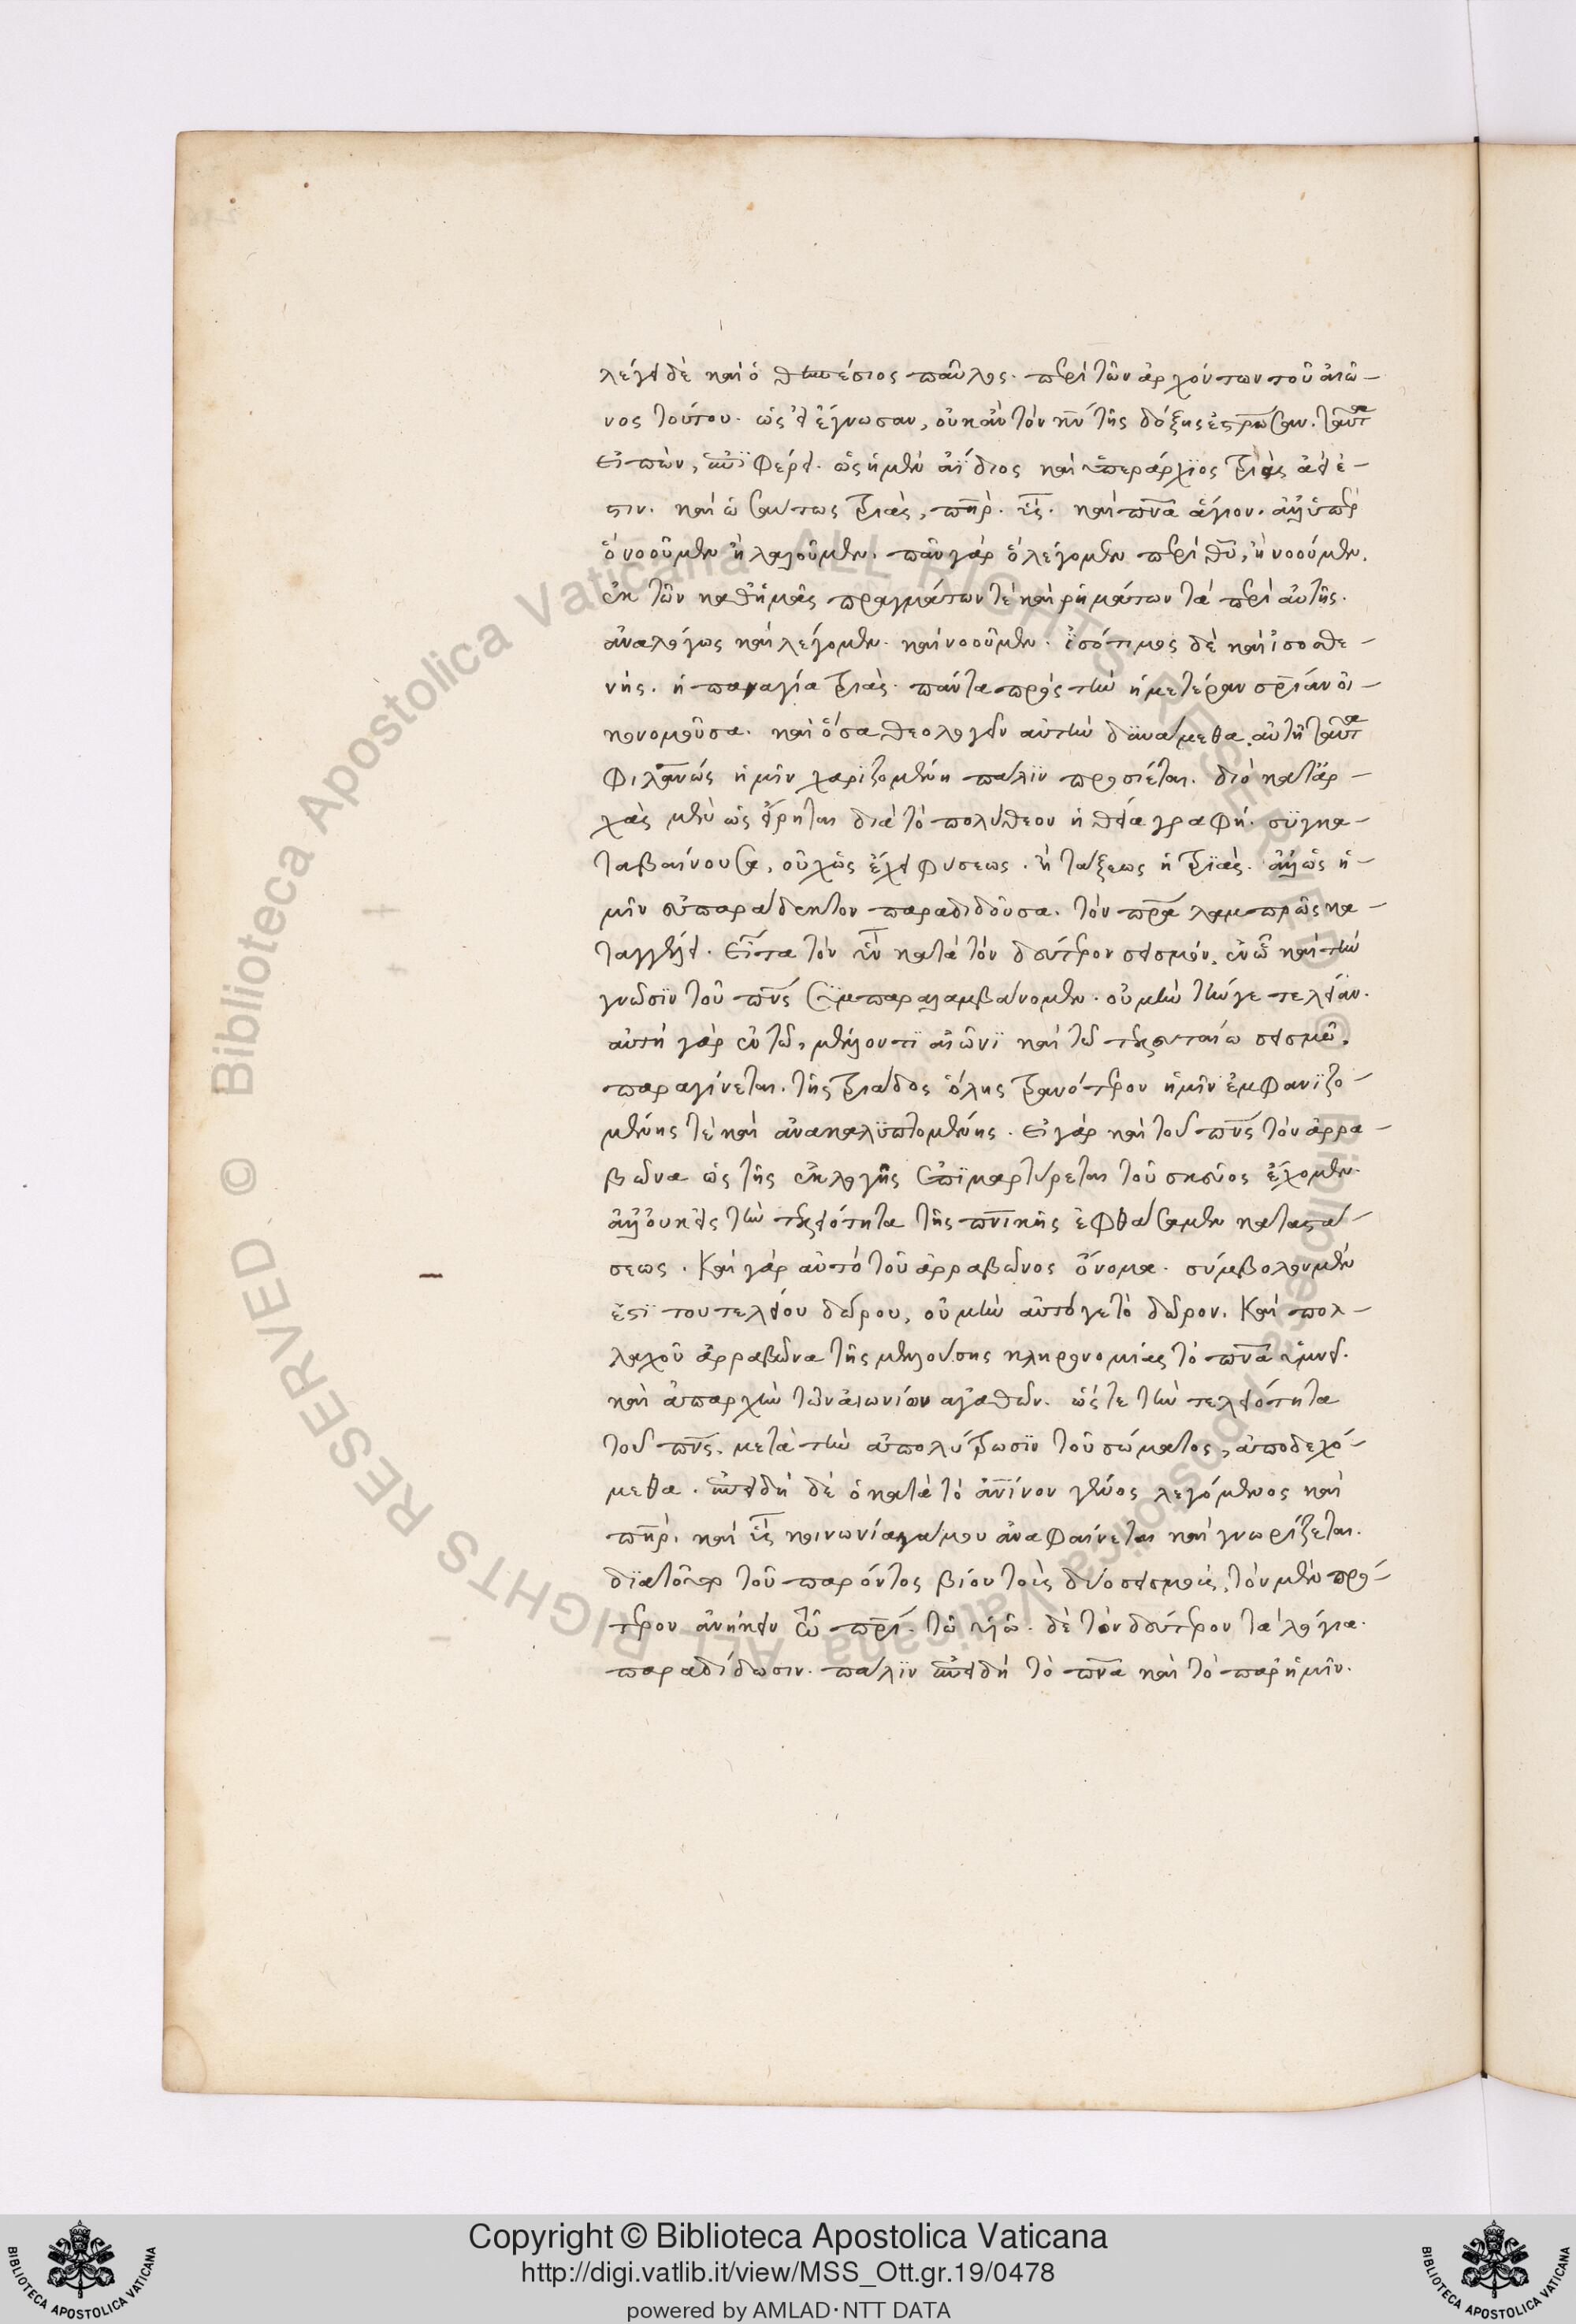 λέγει δὲ καὶ ὁ θεσπέσιος παῦλος· περὶ τῶν ἀρχόντων τοῦ αἰῶ–
νος τούτου· ὡς εἰ ἔγνωσαν, οὐκ ἂν τὸν κ̅ν̅ τῆς δόξης ἐσταύρωσαν. ταῦτα
εἰπὼν, ἐπιφέρει· ὡς ἡ μὲν ἀΐδιος καὶ ὑπεράρχιος τριὰς ἀεὶ ἐ–
στιν. καὶ ὡσαύτως τριὰς, π̅η̅ρ̅. υ̅ς̅. καὶ π̅ν̅α̅ ἅγιον. ἀλλ' ὑπὲρ
ὃ νοοῦμεν ἢ λαλοῦμεν. πᾶν γὰρ ὃ λέγομεν περὶ θ̅υ̅, ἢ νοοῦμεν.
ἐκ τῶν καθ' ἡμᾶς πραγμάτων τὲ καὶ ῥημάτων τὰ περὶ αὐτῆς.
ἀναλόγως καὶ λέγομεν. καὶ νοοῦμεν. ἰσότιμος δὲ καὶ ἰσοσθε–
νὴς. ἡ παναγία τριὰς. πάντα πρὸς τὴν ἡμετέραν σ̅ρ̅ίαν οἰ–
κονομοῦσα. καὶ ὅσα θεολογεῖν αὐτὴν δυνάμεθα. αὐτὴ ταῦτα
φιλα̅ν̅ως ἡμῖν χαριζομένη πάλιν προσίεται. διὸ κατ' ἀρ–
χὰς μὲν ὡς εἴρηται διὰ τὸ πολύθεον ἡ θεία γραφή. συγκα–
ταβαίνουσα, οὐχ ὡς ἔχει φύσεως. ἢ τάξεως ἡ τριὰς. ἀλλ' ὡς ἡ–
μῖν εὐπαράδεκτον παραδιδοῦσα. τὸν π̅ρ̅α̅ λαμπρῶς κα–
ταγγέλλει. εἶτα τὸν υ̅ν̅ κατὰ τὸν δεύτερον σεισμόν. ἐν ᾧ καὶ τὴν
γνῶσιν τοῦ π̅ν̅ς̅ συμπαραλαμβάνομεν. οὐ μὴν τήν γε τελείαν.
αὐτὴ γὰρ ἐν τῷ, μέλλοντι αἰῶνι καὶ τῷ τελευταίω σεισμῶ.
παραγίνεται. τῆς τριάδος ὅλης τρανότερον ἡμῖν ἐμφανιζο–
μένης τὲ καὶ ἀνακαλυπτομένης. εἰ γὰρ καὶ τοῦ π̅ν̅ς̅ τὸν ἀρρα–
βῶνα ὡς τῆς ἐκλογῆς ἐπιμαρτύρεται τοῦ σκεύος ἔχομεν.
ἀλλ' οὐκ εἰς τὴν τελειότητα τῆς π̅ν̅ικῆς ἐφθάσαμεν καταστά–
σεως. Καὶ γὰρ αὐτὸ τοῦ ἀρραβῶνος ὄνομα. σύμβολον μὲν
ἐστὶ του τελείου δώρου, οὐ μὴν αὐτό γε τὸ δῶρον. Καὶ πολ–
λαχοῦ ἀρραβῶνα τῆς μελλούσης κληρονομίας τὸ π̅ν̅α̅ ὑμνεῖ.
καὶ ἀπαρχὴν τῶν αἰωνίων ἀγαθῶν. ὥστε τὴν τελειότητα
τοῦ π̅ν̅ς̅. μετὰ τὴν ἀπολύτρωσιν τοῦ σώματος, ἀποδεχό–
μεθα. ἐπειδὴ δὲ ὁ κατὰ τὸ ἀ̅ν̅ίνον γένος λεγόμενος καὶ
π̅η̅ρ̅. καὶ υ̅ς̅ κοινωνία γάμου ἀναφαίνεται καὶ γνωρίζεται.
διατοῦτο τοῦ παρόντος βίου τοῖς δύο σεισμοῖς, τὸν μὲν πρό–
τερον ἀνῆκεν τῶ π̅ρ̅ι̅. τῶ υ̅ῶ̅. δὲ τὸν δεύτερον τὰ λόγια.
παραδίδωσιν. πάλιν ἐπειδὴ τὸ π̅ν̅α̅ καὶ τὸ παρ' ἡμῖν.
Copyright © Biblioteca Apostolica Vaticana
http://digi.vatlib.it/view/MSS_Ott.gr.19/0478
powered by AMLAD·NTT DATA
BIBLIOTECA APOSTOLICA VATICANA
BIBLIOTECA APOSTOLICA VATICANA
Biblioteca Apostolica Vaticana ALL RIGHTS RESERVED ©
Biblioteca Apostolica Vaticana ALL RIGHTS RESERVED ©